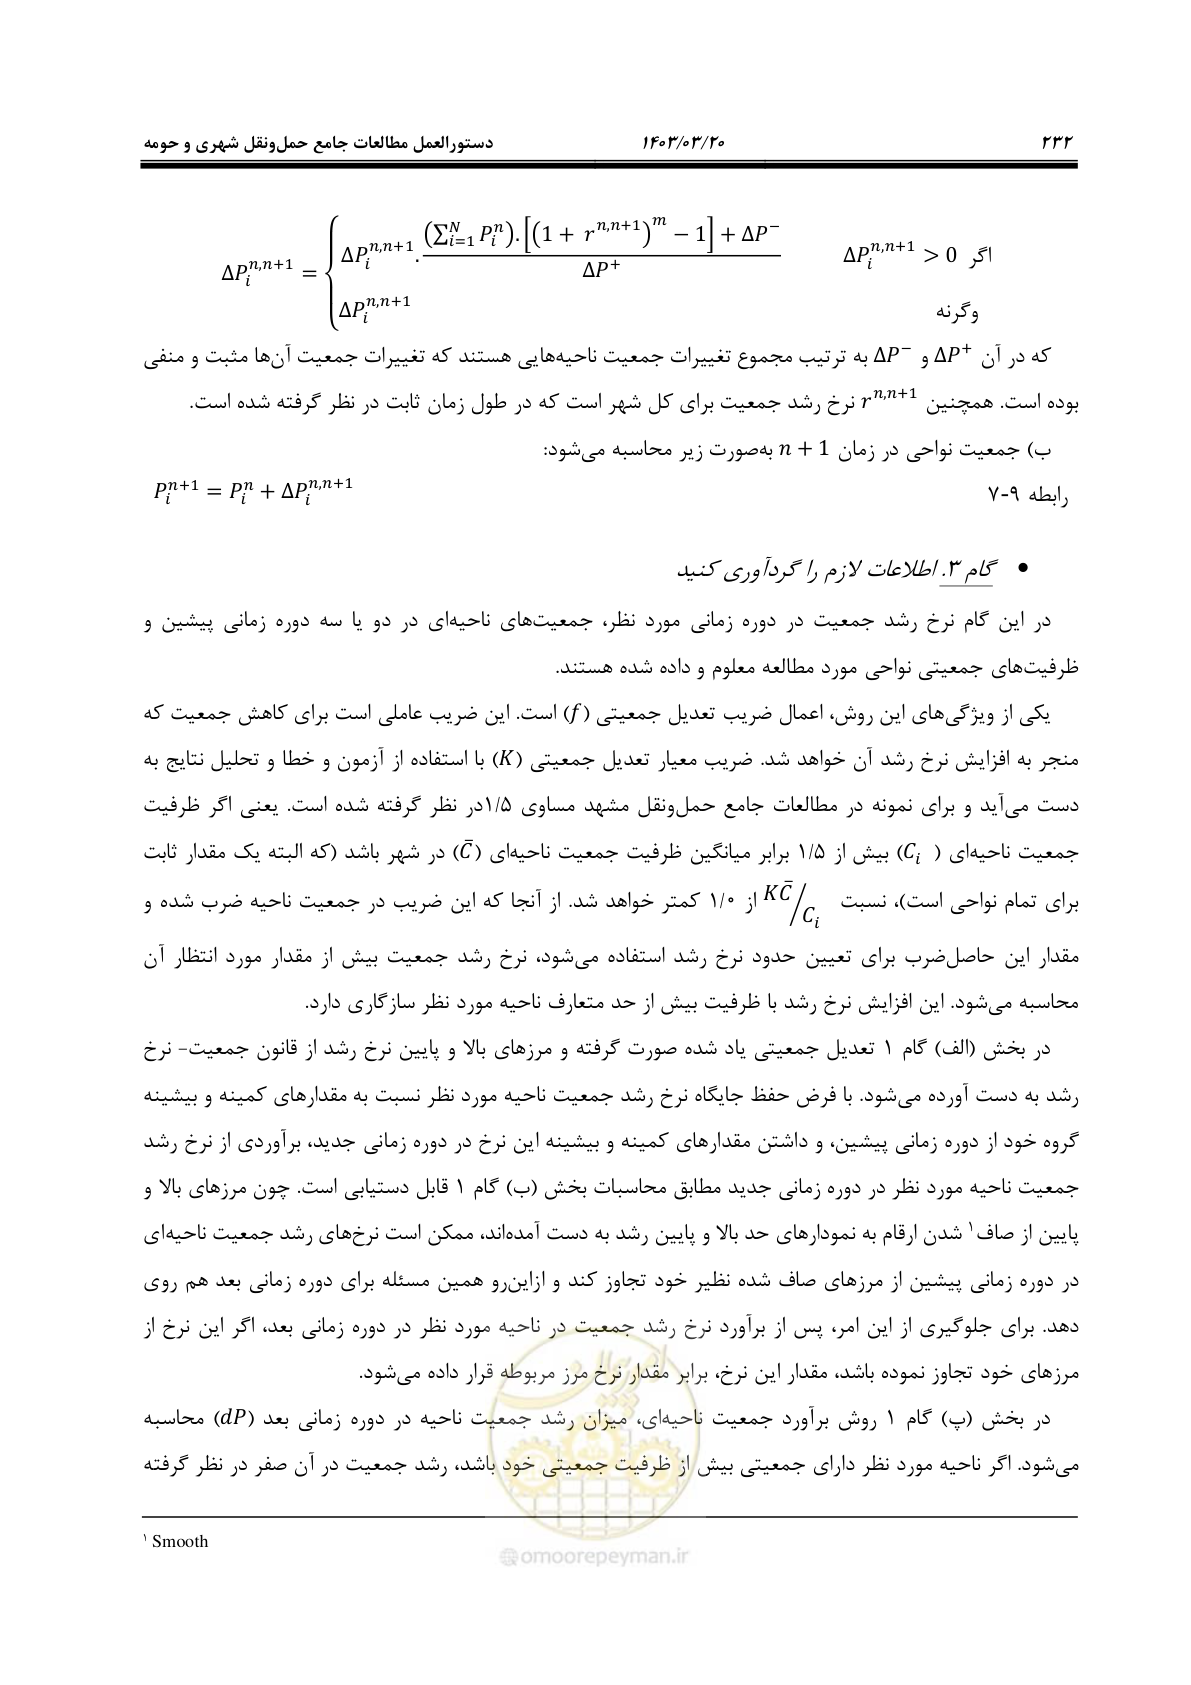 ۲۳۲ ۱۴۰۳/۰۳/۲۰ دستورالعمل مطالعات جامع حمل‌ونقل شهری و حومه
ΔP_i^{n,n+1} = { ΔP_i^{n,n+1} . (∑_{i=1}^{N} P_i^n).[(1 + r^{n,n+1})^m − 1] + ΔP^− / ΔP^+ اگر ΔP_i^{n,n+1} > 0
ΔP_i^{n,n+1} وگرنه
که در آن ΔP^+ و ΔP^− به ترتیب مجموع تغییرات جمعیت ناحیه‌هایی هستند که تغییرات جمعیت آن‌ها مثبت و منفی
بوده است. همچنین r^{n,n+1} نرخ رشد جمعیت برای کل شهر است که در طول زمان ثابت در نظر گرفته شده است.
ب) جمعیت نواحی در زمان n + 1 به‌صورت زیر محاسبه می‌شود:
رابطه ۹-۷ P_i^{n+1} = P_i^n + ΔP_i^{n,n+1}
• گام ۳. اطلاعات لازم را گردآوری کنید
در این گام نرخ رشد جمعیت در دوره زمانی مورد نظر، جمعیت‌های ناحیه‌ای در دو یا سه دوره زمانی پیشین و
ظرفیت‌های جمعیتی نواحی مورد مطالعه معلوم و داده شده هستند.
یکی از ویژگی‌های این روش، اعمال ضریب تعدیل جمعیتی (f) است. این ضریب عاملی است برای کاهش جمعیت که
منجر به افزایش نرخ رشد آن خواهد شد. ضریب معیار تعدیل جمعیتی (K) با استفاده از آزمون و خطا و تحلیل نتایج به
دست می‌آید و برای نمونه در مطالعات جامع حمل‌ونقل مشهد مساوی ۱/۵در نظر گرفته شده است. یعنی اگر ظرفیت
جمعیت ناحیه‌ای ( C_i) بیش از ۱/۵ برابر میانگین ظرفیت جمعیت ناحیه‌ای (C̄) در شهر باشد (که البته یک مقدار ثابت
برای تمام نواحی است)، نسبت KC̄/C_i از ۱/۰ کمتر خواهد شد. از آنجا که این ضریب در جمعیت ناحیه ضرب شده و
مقدار این حاصل‌ضرب برای تعیین حدود نرخ رشد استفاده می‌شود، نرخ رشد جمعیت بیش از مقدار مورد انتظار آن
محاسبه می‌شود. این افزایش نرخ رشد با ظرفیت بیش از حد متعارف ناحیه مورد نظر سازگاری دارد.
در بخش (الف) گام ۱ تعدیل جمعیتی یاد شده صورت گرفته و مرزهای بالا و پایین نرخ رشد از قانون جمعیت- نرخ
رشد به دست آورده می‌شود. با فرض حفظ جایگاه نرخ رشد جمعیت ناحیه مورد نظر نسبت به مقدارهای کمینه و بیشینه
گروه خود از دوره زمانی پیشین، و داشتن مقدارهای کمینه و بیشینه این نرخ در دوره زمانی جدید، برآوردی از نرخ رشد
جمعیت ناحیه مورد نظر در دوره زمانی جدید مطابق محاسبات بخش (ب) گام ۱ قابل دستیابی است. چون مرزهای بالا و
پایین از صاف۱ شدن ارقام به نمودارهای حد بالا و پایین رشد به دست آمده‌اند، ممکن است نرخ‌های رشد جمعیت ناحیه‌ای
در دوره زمانی پیشین از مرزهای صاف شده نظیر خود تجاوز کند و ازاین‌رو همین مسئله برای دوره زمانی بعد هم روی
دهد. برای جلوگیری از این امر، پس از برآورد نرخ رشد جمعیت در ناحیه مورد نظر در دوره زمانی بعد، اگر این نرخ از
مرزهای خود تجاوز نموده باشد، مقدار این نرخ، برابر مقدار نرخ مرز مربوطه قرار داده می‌شود.
در بخش (پ) گام ۱ روش برآورد جمعیت ناحیه‌ای، میزان رشد جمعیت ناحیه در دوره زمانی بعد (dP) محاسبه
می‌شود. اگر ناحیه مورد نظر دارای جمعیتی بیش از ظرفیت جمعیتی خود باشد، رشد جمعیت در آن صفر در نظر گرفته
۱ Smooth
@omoorepeyman.ir